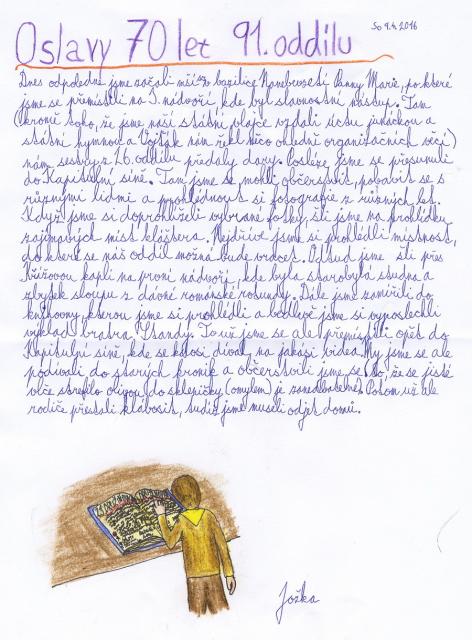 So 9.4.2016
Oslavy 70 let 91. oddílu
Dnes odpoledne jsme začali mší v bazilice Nanebevzetí Panny Marie, po které
jsme se přemístili na 3. nádvoří, kde byl slavnostní nástup. Tam
(kromě toho, že jsme naší státní vlajce vzdali úctu junáckou a
státní hymnou a Vojťák nám řekl něco ohledně organizačních věcí)
nám sestry z 26. oddílu předaly dary. Posléze jsme se přesunuli
do Kapitulní síně. Tam jsme se mohli občerstvit, pobavit se s
různými lidmi a prohlédnout si fotografie z různých let.
Když jsme si doprohlíželi vybrané fotky, šli jsme na prohlídku
zajímavých míst kláštera. Nejdříve jsme si prohlédli místnost,
do které se náš oddíl možná bude vracet. Odtud jsme šli přes
Křížovou kapli na první nádvoří, kde byla starobylá studna a
zbytek sloupu z dávné románské rotundy. Dále jsme zamířili do
knihovny, kterou jsme si prohlédli a bedlivě jsme si vyposlechli
výklad bratra Standy. Touž jsme se ale přemístili opět do
Kapitulní síně, kde se kdosi díval na jakási videa. My jsme se ale
podívali do starých kronik a občerstvili jsme se. To, že se jisté
vlče strefilo olivou do skleničky (omylem) je zanedbatelné. Potom už ale
rodiče přestali klábosit, tudíž jsme museli odjet domů.
Jožka